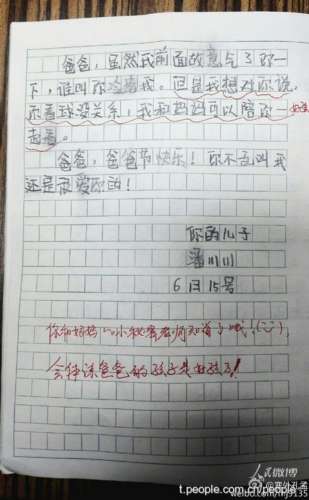 爸爸，虽然我前面故意气了你一
下，谁叫你冷落我。但是我想对你说，
你看球没关系，我和妈妈可以陪你一
起看。
爸爸，爸爸节快乐！你不怎叫我
还是很爱你的！
你的儿子
潘川川
6日15号
你和妈妈的小秘密老师知道了哦！
会体谅爸爸的孩子是好孩子！
人民微博
t.people.com.cn/people
@塞外孔孟
weibo.com/mj3135